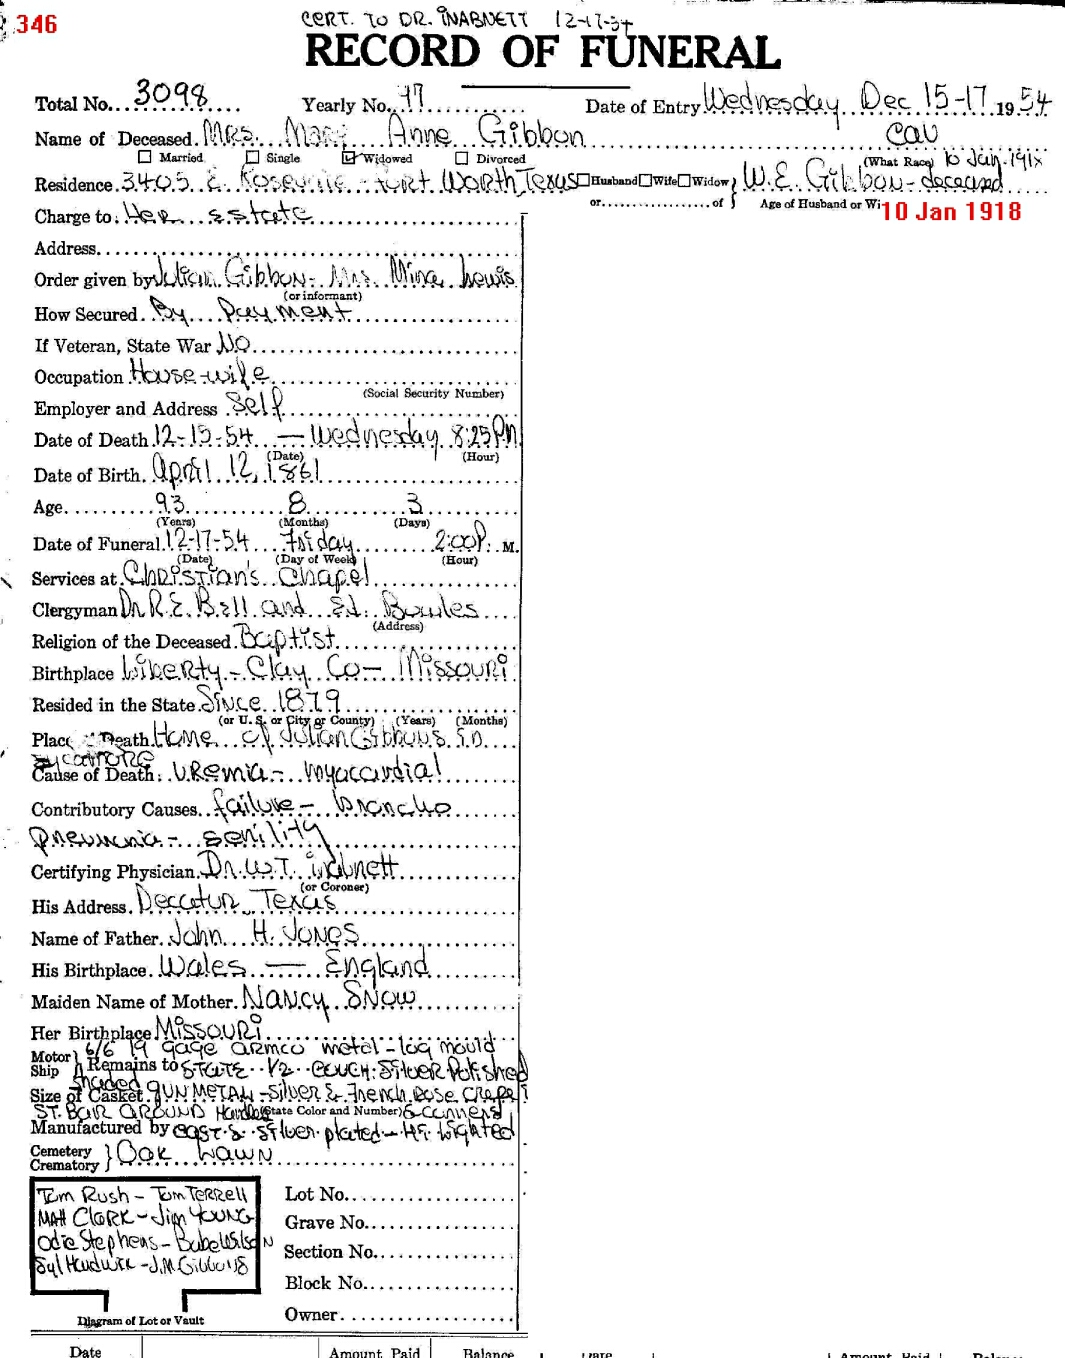 346
CERT. TO DR. INABNETT 12-17-54
RECORD OF FUNERAL
Total No. 3098 Yearly No. 97 Date of Entry Wednesday Dec 15-17 1954
Name of Deceased. Mrs. Mary Anne Gibbon Cau
Married Single Widowed Divorced (What Race) 10 Jan. 1918
Residence. 3405 E. Rosedale - Fort Worth Texas Husband Wife Widow W. E. Gibbon - deceased
or of Age of Husband or Wi
10 Jan 1918
Charge to: Her estate
Address
Order given by Julian Gibbon - Mrs. Mina Lewis
(or informant)
How Secured. By Payment
If Veteran, State War No
Occupation House-wife
(Social Security Number)
Employer and Address Self
Date of Death 12-15-54 — Wednesday 8:25 Pm
(Date) (Hour)
Date of Birth. April 12, 1861
Age 93 8 3
(Years) (Months) (Days)
Date of Funeral 12-17-54 Friday 2:00 P. M.
(Date) (Day of Week) (Hour)
Services at Christian's Chapel
Clergyman Dr. R.E. Bell and Ed. Bowles
(Address)
Religion of the Deceased. Baptist
Birthplace Liberty - Clay Co - Missouri
Resided in the State Since 1879
(or U. S. or City or County) (Years) (Months)
Place Death Home of Julian Gibbons in
Sycamore
Cause of Death: Uremia - myacardial
Contributory Causes failure - broncho
pneumonia - senility
Certifying Physician Dr. W.T. Inabnett
(or Coroner)
His Address. Deccatur, Texas
Name of Father. John H. Jones
His Birthplace. Wales — England
Maiden Name of Mother. Nancy Snow
Her Birthplace Missouri
6/6 19 gage armco metal - log mould
Motor Ship Remains to STATE - 1/2 COUCH: Silver Polished
Shaded
Size of Casket. GUN METAL - Silver & French Rose Crepe
ST. BAR AROUND Handles (State Color and Number) 6 corners
Manufactured by East-2. silver plated -
Cemetery Crematory } Oak Lawn
Tom Rush - Tom Terrell
Matt Clark - Jim Young
Odie Stephens - Bube Wilson
Syl Hudwick - J.M Gibbons
Lot No.
Grave No.
Section No.
Block No.
Owner
Diagram of Lot or Vault
Date Amount Paid Balance Date Amount Paid Balance